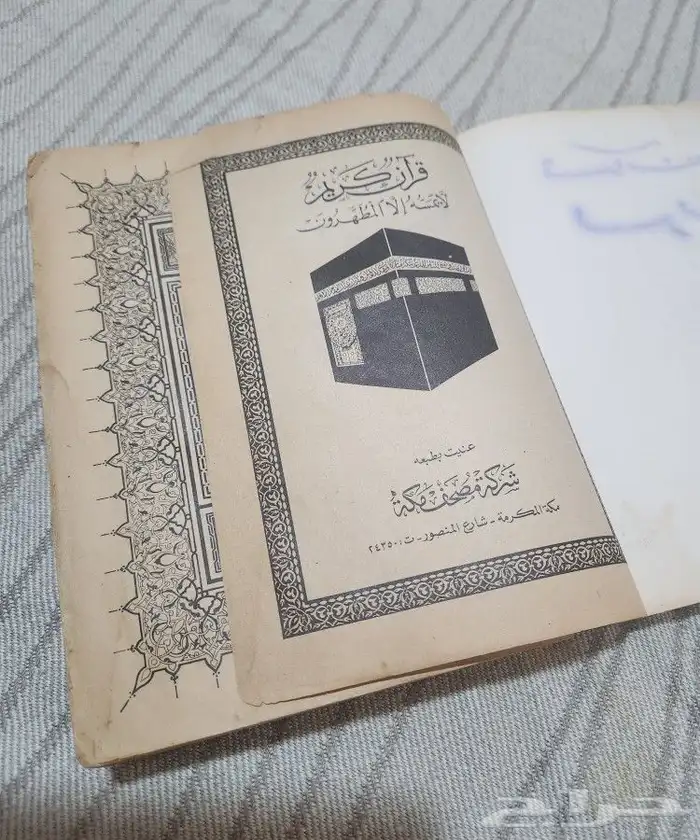 قرآن كريم
لا يمسه إلا المطهرون
عنيت بطبعه
شركة مصحف مكة
مكة المكرمة - شارع المنصور - ت: ٢٤٣٥٠
حراج